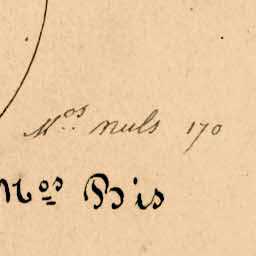 Mos nuls 170
Nos Bis